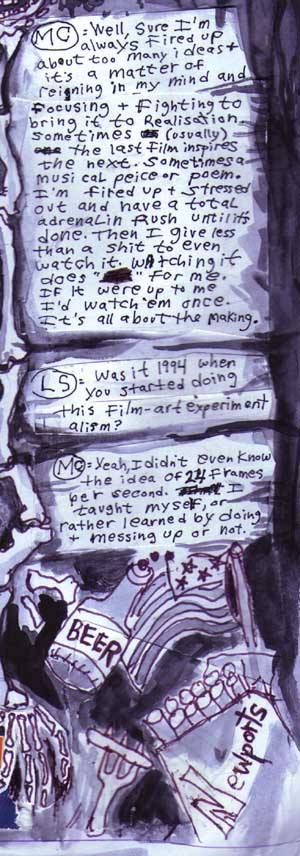 MC = Well, Sure I'm
always fired up
about too many ideas +
it's a matter of
reigning in my mind and
focusing + fighting to
bring it to Realisation.
Sometimes (usually)
the last film inspires
the next. Sometimes a
musical peice or poem.
I'm fired up + stressed
out and have a total
adrenalin Rush until it's
done. Then I give less
than a shit to even
watch it. Watching it
does " For me.
IF It were up to me
I'd watch 'em once.
It's all about the Making.
LS = Was it 1994 when
you started doing
this Film-art experiment
alism?
MC = Yeah, I didn't even Know
the idea of 24 frames
per second. I
taught myself, or
rather learned by doing
+ messing up or not.
BEER
Newports